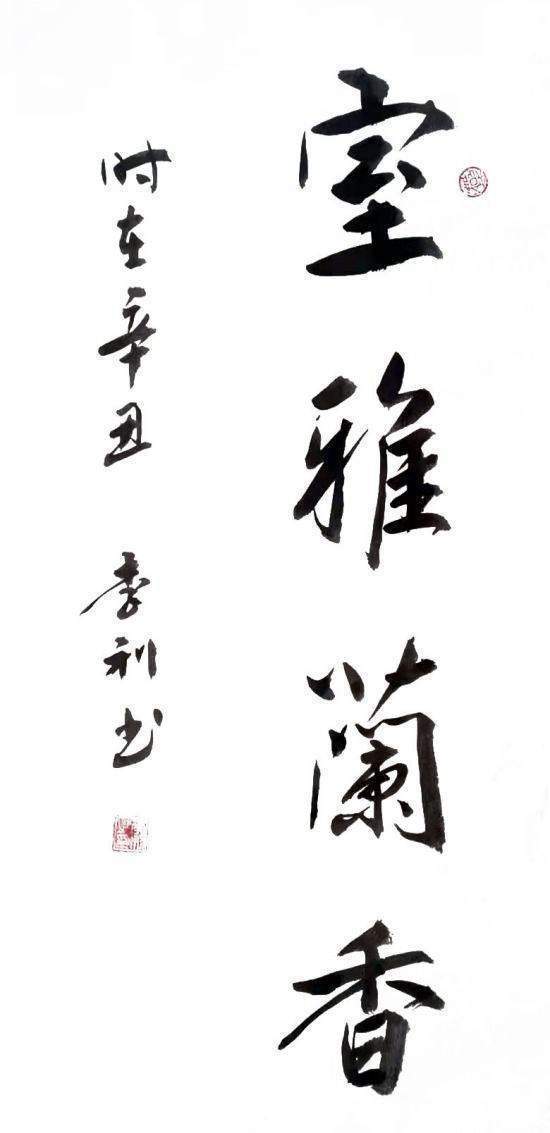 室雅蘭香
时在辛丑 李利书